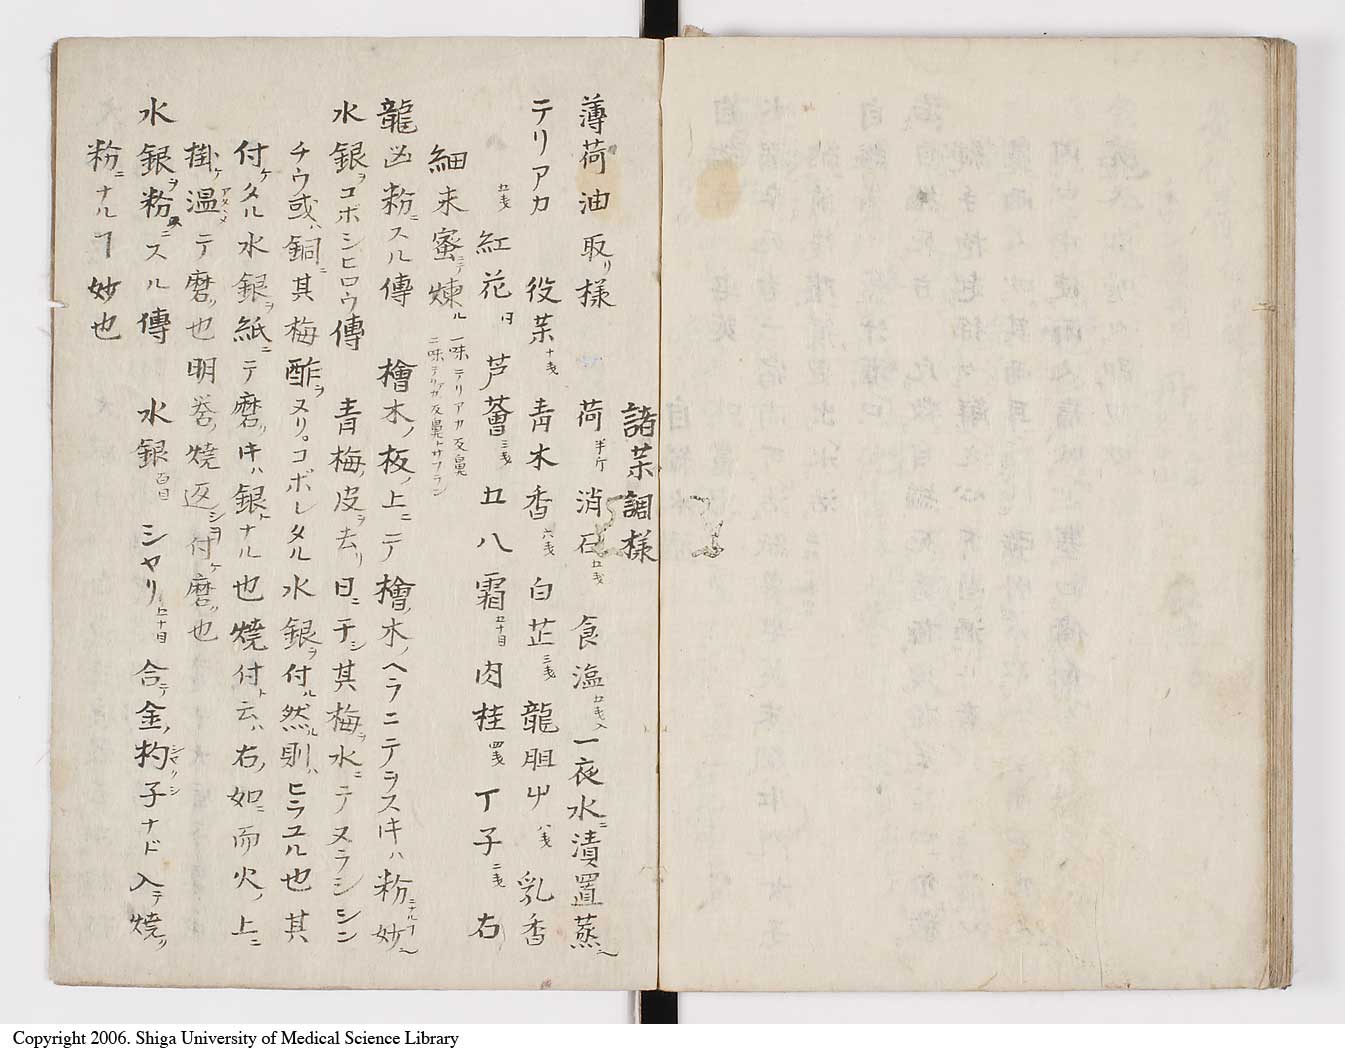 諸茱調様
薄荷油取リ様 荷半斤 消石五戋 食塩五戋入 一夜水ニ漬置蒸ス
テリアカ 役茱十戋 青木香六戋 白芷三戋 龍胆屮八戋 乳香
五戋 紅花 芦薈三戋 五八霜五十目 肉桂四戋 丁子二戋 右
細末蜜ニテ煉ル 一味テリアカ反鼻 二味テリアカ反鼻トサフラン
龍凶粉ニスル傳 檜木ノ板ノ上ニテ檜ノ木ノヘラニテヲスキハ粉ニナルヿ妙
水銀ヲコボシヒロウ傳 青梅ノ皮ヲ去リ日ニ干シ其梅ヲ水ニテヌラシシン
チウ或ハ銅ニ其梅酢ヲヌリコボレタル水銀ヲ付ル然ル則ハヒラユル也其
付ケタル水銀ヲ紙ニテ磨ツキハ銀トナル也焼付ト云ハ右ノ如ニ而火ノ上ニ
掛ケ温アタタメテ磨ツ也明礬ノ焼返シヲ付ケ磨ツ也
水銀ヲ粉ニスル傳 水銀百目 シヤリ五十目 合テ金ノ杓子シヤクシナド入テ焼ク
粉ニナルヿ妙也
Copyright 2006. Shiga University of Medical Science Library